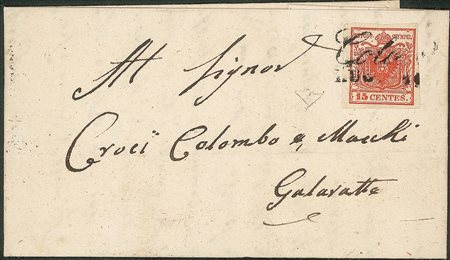 Al Signor
Croci Colombo e Macchi
Galaratte
15 CENTES.